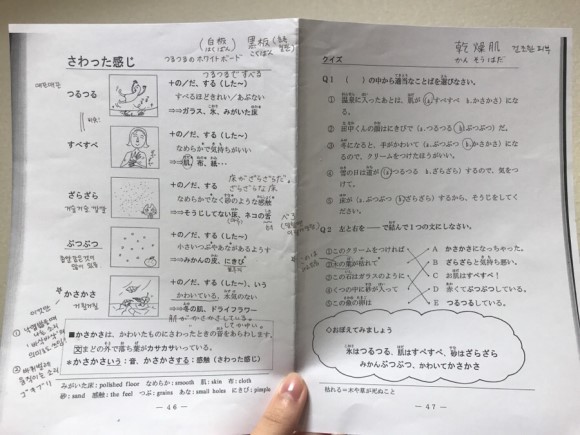 (白板)
はくばん
黒板
こくばん
つるつるのホワイトボード
さわった感じ
つるつるですべる
つるつる
+の/だ、する (した〜)
すべるほどきれい/あぶない
⇒ガラス、氷、みがいた床
すべすべ
+の/だ、する (した〜)
なめらかで気持ちがいい
⇒肌、布、紙…
床がざらざらだ。
ざらざらな床
ざらざら
+の/だ、する (した〜)
なめらかでなく砂のような感触
⇒そうじしてない床、ネコの舌
ぶつぶつ
+の/だ、する (した〜)
小さいつぶやあながあるようす
⇒みかんの皮、にきび
☆かさかさ
+の/だ、する (した〜)、いう
かわいている。水気のない
⇒冬の肌、ドライフラワー
肌がかさかさしている。
■かさかさは、かわいたものにさわったときの音をあらわします。
文 まどの外で落ち葉がカサカサいっている。
*かさかさいう:音、かさかさする:感触 (さわった感じ)
みがいた床:polished floor なめらか:smooth 肌:skin 布:cloth
砂:sand 感触:the feel つぶ:grains あな:small holes にきび:pimple
-46-
乾燥肌
かんそうはだ
건조한 피부
クイズ
Q1 ( )の中から適当なことばを選びなさい。
① 温泉に入ったあとは、肌が (a.すべすべ b.かさかさ) にな
る。
② 田中くんの顔はにきびで (a.つるつる b.ぶつぶつ) だ。
③ 冬になると、手がかわいて (a.ぶつぶつ b.かさかさ) にな
るので、クリームをつけたほうがいい。
④ 雪の日は道が (a.つるつる b.ざらざら) するので、気をつ
けて。
⑤ 床が (a.ぶつぶつ b.ざらざら) するから、そうじをしてく
ださい。
Q2 左と右を──で結んで1つの文にしなさい。
①このクリームをつければ
A かさかさになっちゃった。
②木の葉が枯れて
B ざらざらと気持ち悪い。
③この石はガラスのように
C お肌はすべすべ!
④くつの中に砂が入って
D 赤くてぶつぶつしている。
⑤この魚の卵は
E つるつるしている。
◇おぼえてみましょう
氷はつるつる、肌はすべすべ、砂はざらざら
みかんぶつぶつ、かわいてかさかさ
枯れる=木や草が死ぬこと
-47-